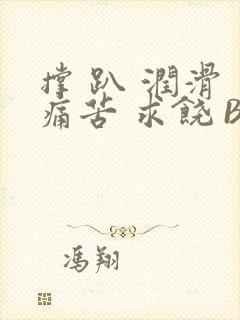 撑 趴 潤滑
痛苦 求饒 B
馮翔